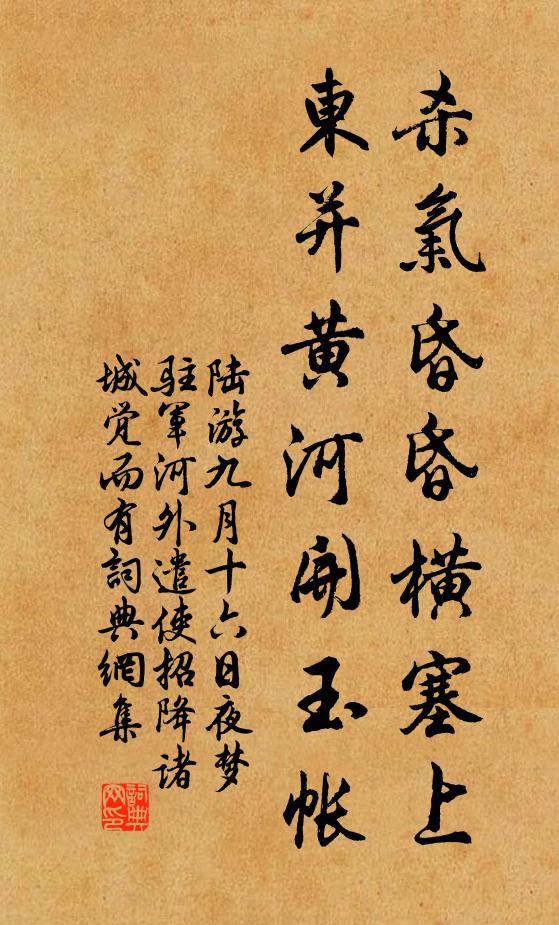 杀氣昏昏橫塞上
東并黄河開玉帐
陆游九月十六日夜梦
驻軍河外遣使招降诸
城觉而有詞典網集
詞典
网印